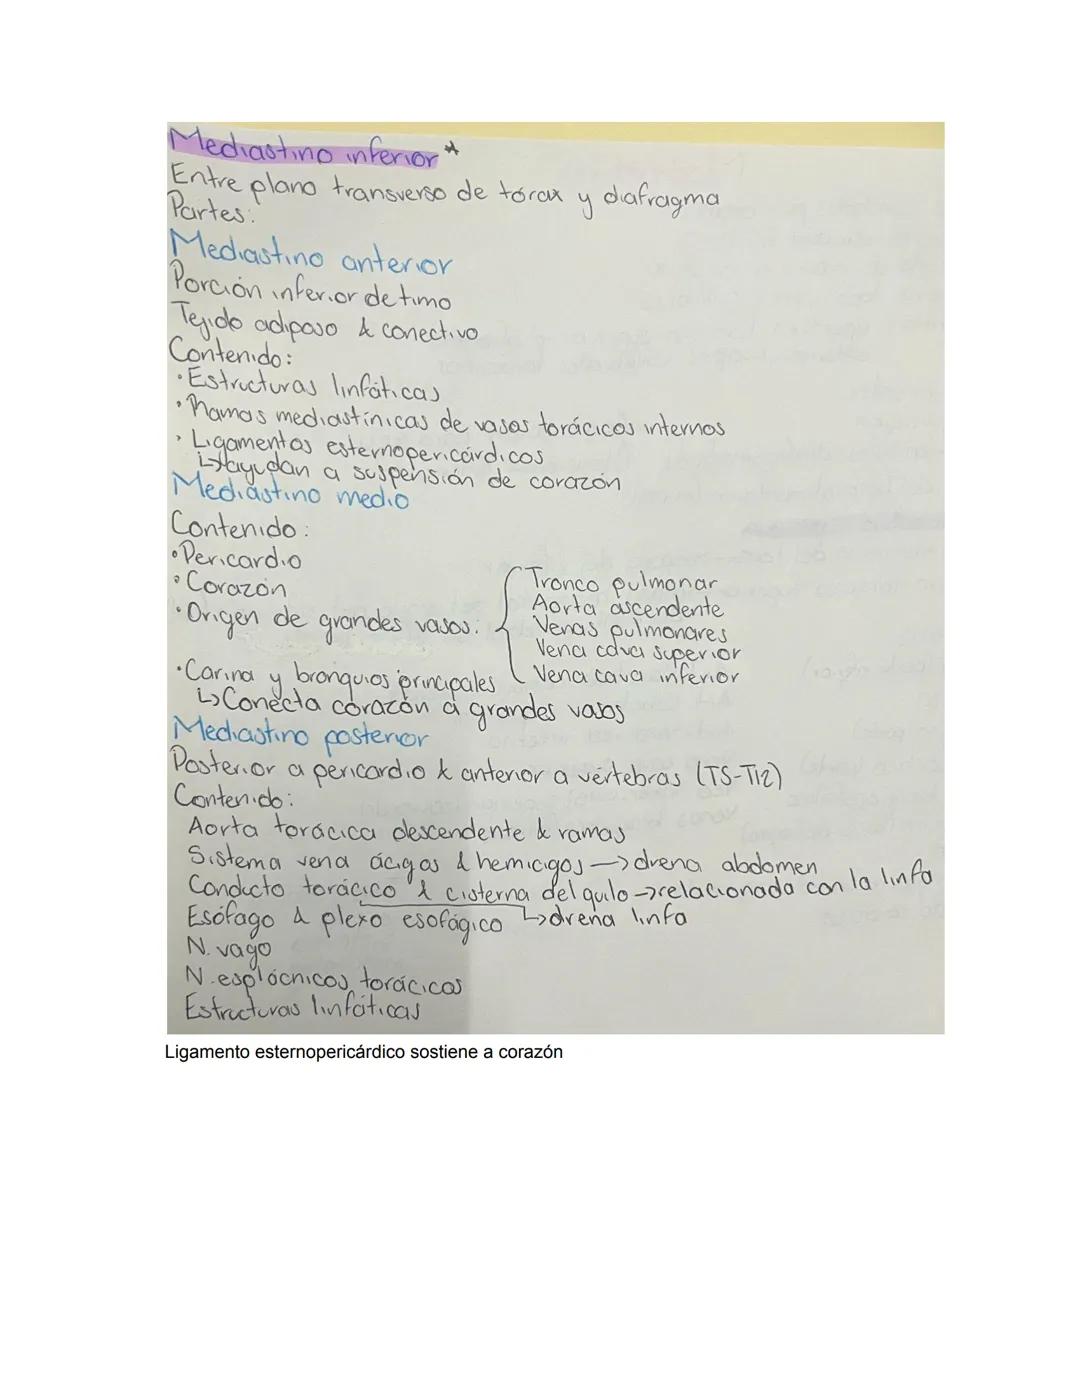 Mediastino inferior *
Entre plano transverso de tórax y diafragma
Partes:
Mediastino anterior
Porción inferior de timo
Tejido adiposo & conectivo
Contenido:
• Estructuras linfáticas
• Ramas mediastínicas de vasos torácicos internos
• Ligamentos esternopericárdicos
↳ ayudan a suspensión de corazón
Mediastino medio
Contenido:
• Pericardio
• Corazón
• Origen de grandes vasos:
Tronco pulmonar
Aorta ascendente
Venas pulmonares
Vena cava superior
Vena cava inferior
• Carina y bronquios principales
↳ Conecta corazón a grandes vasos
Mediastino posterior
Posterior a pericardio & anterior a vértebras (T5-T12)
Contenido:
Aorta torácica descendente & ramas
Sistema vena ácigos & hemicigos → drena abdomen
Conducto torácico & cisterna del quilo → relacionada con la linfa
↳ drena linfa
Esófago & plexo esofágico
N. vago
N. esplácnicos torácicos
Estructuras linfáticas
Ligamento esternopericárdico sostiene a corazón